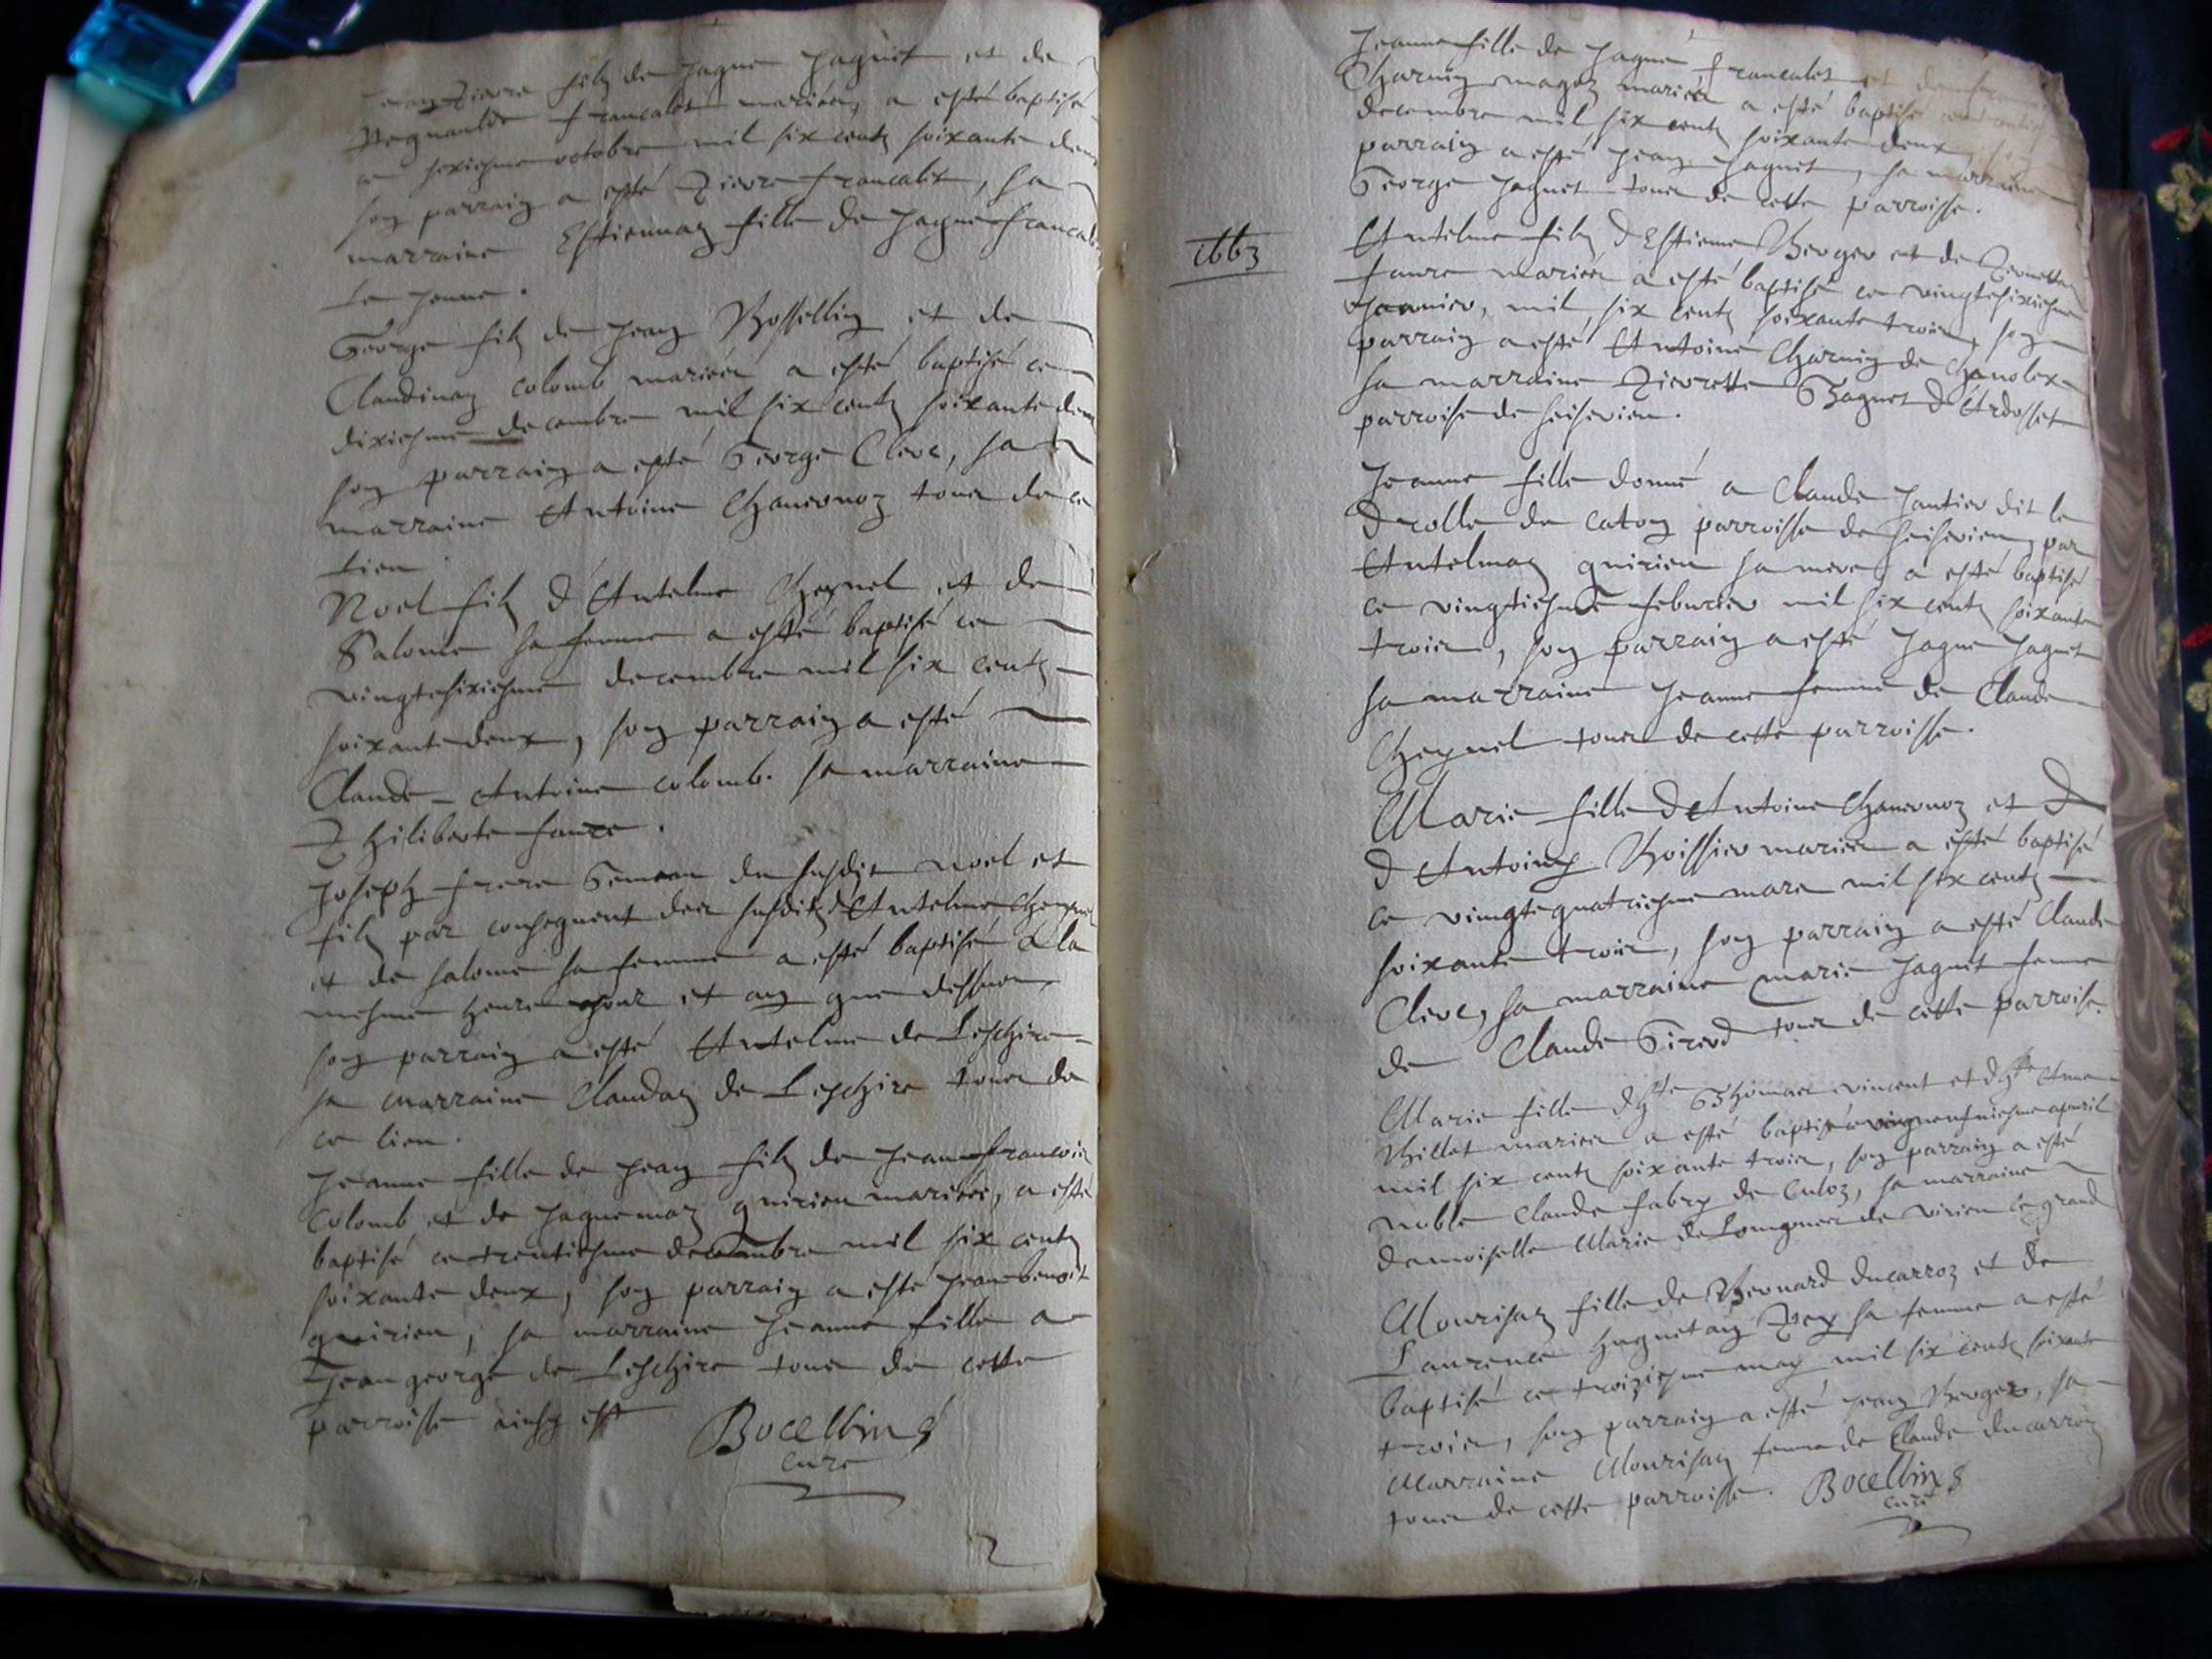 Jean Pierre filz de Jaque Jaquet et de
Regnaulde francalet mariés, a esté baptisé
ce sexiesme octobre mil six centz soixante deux
son parrain a esté Pierre francalet, sa
marraine Estiennaz fille de Jaque francalet
le jeune.
George filz de Jean Rossellin et de
Claudinaz colomb mariés a esté baptisé ce
dixiesme decembre mil six centz soixante deux
son parrain a esté George Clerc, sa
marraine Antoine Chanvonoz tous de ce
lieu
Noel filz d'Antelme Cheynel et de
Salome sa femme a esté baptisé ce
vingtesixiesme decembre mil six centz
soixante deux, son parrain a esté
Claude-Antoine colomb. sa marraine
Philiberte faure.
Joseph frere Gemeau du susdit noel et
filz par consequent des susditz d'Antelme Cheynel
et de salome sa femme a esté baptisé a la
mesme heure jour et an que dessus,
son parrain a esté Antelme de Leschire
sa marraine Claudaz de Leschire tous de
ce lieu.
Jeanne fille de Jean filz de Jean francois
Colomb et de Jaquemaz quirieu mariés, a esté
baptisé ce trentiesme decembre mil six centz
soixante deux, son parrain a esté Jean benoit
quirieu, sa marraine Jeanne fille a
Jean george de Leschire tous de cette
parroisse ainsy est Bocellin
curé
Jeanne fille de Jaque francalet et de
Charvin mariés a esté baptisé
decembre mil six centz soixante deux, son
parrain a esté Jean Jaquet, sa marraine
George Jaquet tous de cette parroisse.
1663
Antelme filz d'Estienne Berger et de Pernette
faure mariés a esté baptisé ce vingtesixiesme
Janvier, mil six centz soixante trois, son
parrain a esté Antoine Charvin de Chanolex
sa marraine Pierrette Gagnet d'Ardosset
parroisse de Seiserieu.
Jeanne fille donné a Claude Jantier dit le
drolle de caton parroisse de Seiserieu, par
Antelmaz quirieu sa mere, a esté baptisé
ce vingtiesme feburier mil six centz soixante
trois, son parrain a esté Jaque Jaquet
sa marraine Jeanne femme de Claude
Cheynel tous de cette parroisse.
Marie fille d'Antoine Chanvonoz et d
d'Antoine Boissier mariés a esté baptisé
ce vingtequatriesme mars mil six centz
soixante trois, son parrain a esté Claude
Clerc, sa marraine marie Jaquet femme
de Claude Girerd tous de cette parroisse.
Marie fille d'h.te Thomas vincent et d'h.te Anne
Billet mariés a esté baptisé ce vingneufviesme apvril
mil six centz soixante trois, son parrain a esté
noble Claude fabry de Culoz, sa marraine
damoiselle Marie de Longues de virieu le grand
Mourisaz fille de Bernard ducarroz et de
Laurence huguetan Pey sa femme a esté
baptisé ce troiziesme may mil six centz soixante
trois, son parrain a esté Jean Berger, sa
Marraine Mourisaz femme de Claude ducarroz
tous de cette parroisse. Bocellin
curé